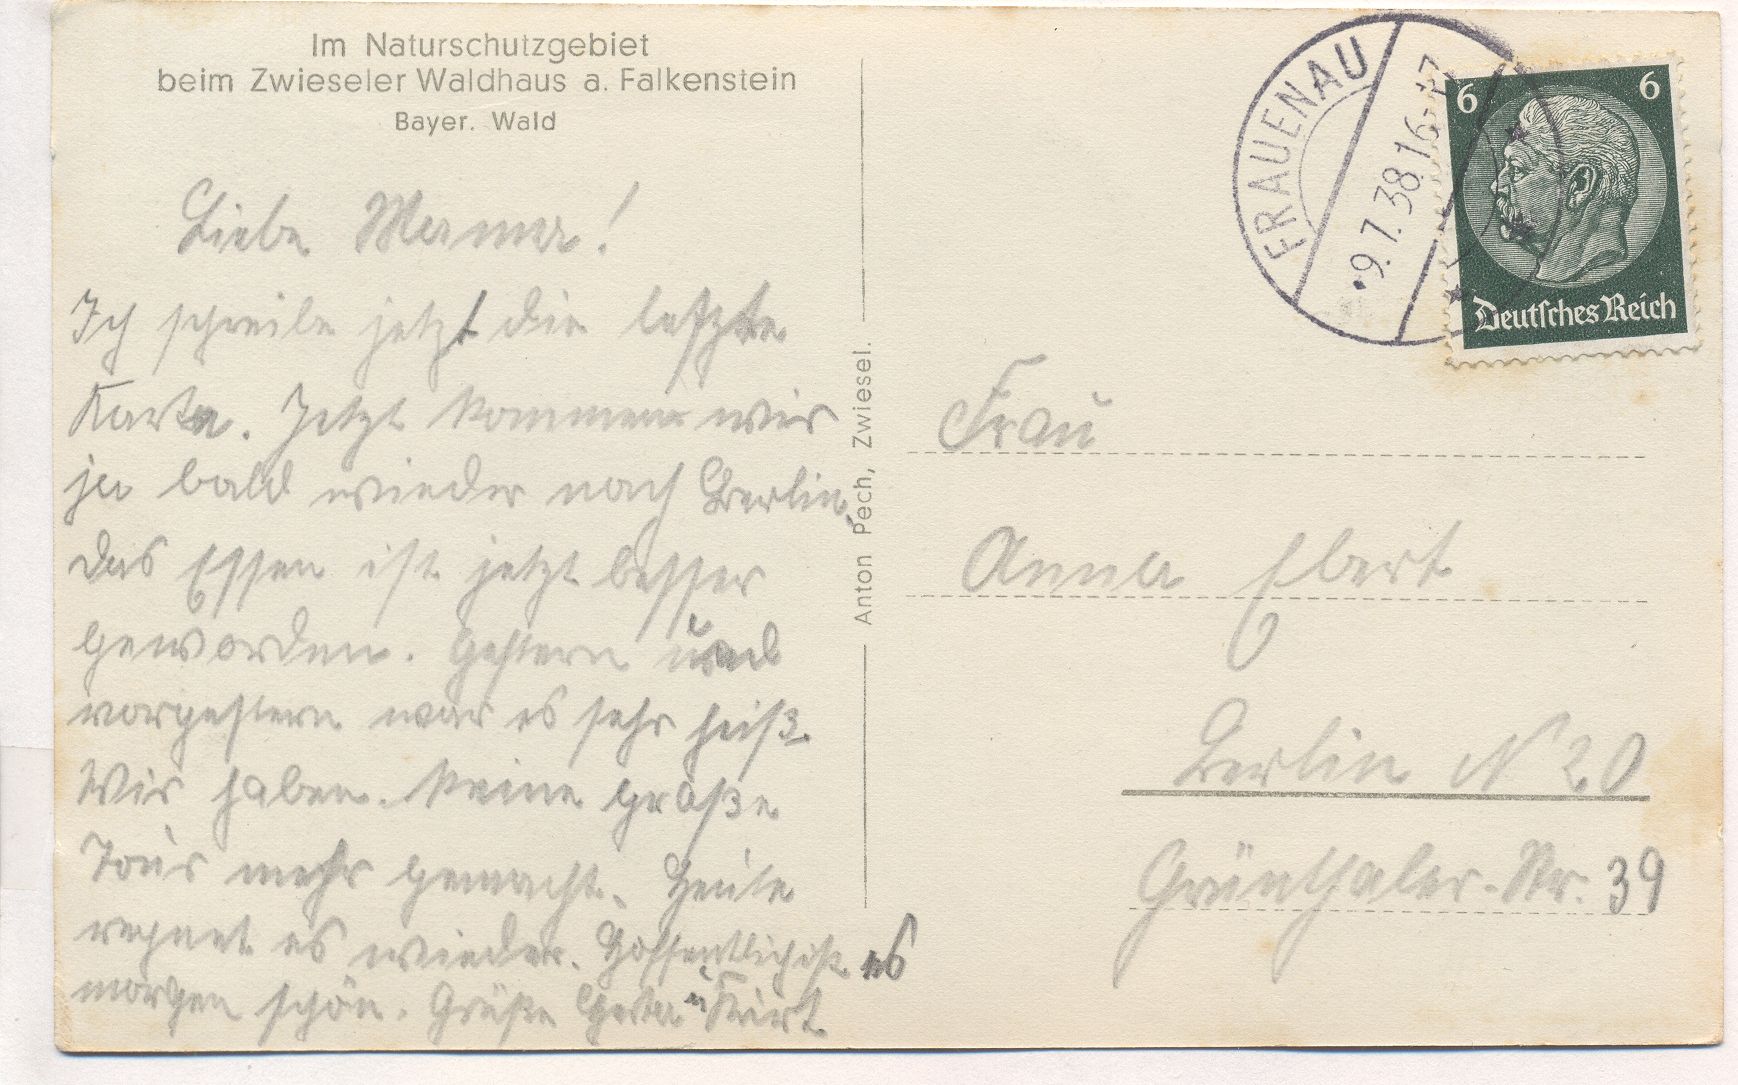 Im Naturschutzgebiet
beim Zwieseler Waldhaus a. Falkenstein
Bayer. Wald
Liebe Mama!
Ich schreibe jetzt die letzte
Karte. Jetzt kommen wir
ja bald wieder nach Berlin.
Das Essen ist jetzt besser
geworden. Gestern und
vorgestern war es sehr heiß.
Wir haben keine große
Tour mehr gemacht. Heute
regnet es wieder. Hoffentlich ist es
morgen schön. Grüße u. Kurt
Anton Pech, Zwiesel.
FRAUENAU
9.7.38.16-17
6 6
Deutsches Reich
Frau
Anna Ebert
Berlin N 20
Grünthaler-Str. 39